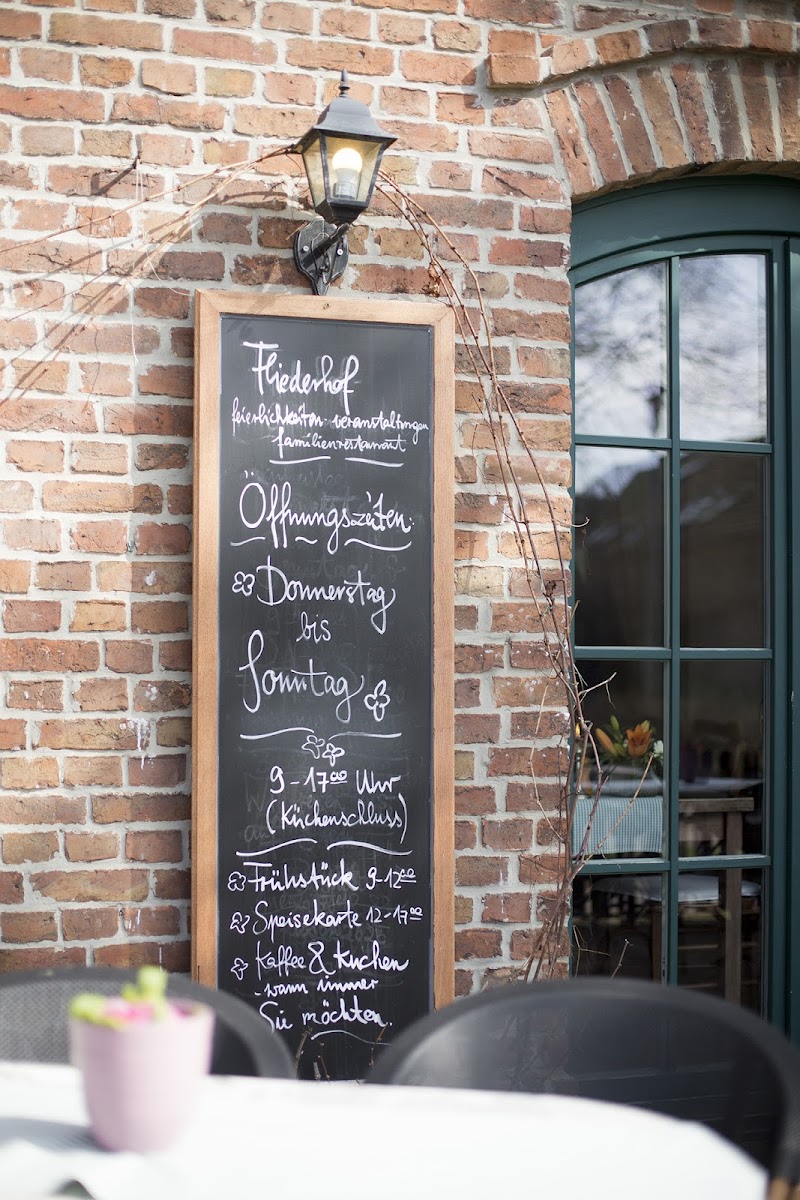 Fliederhof
feierlichkeiten veranstaltungen
familienrestaurant
Öffnungszeiten:
Donnerstag
bis
Sonntag
9-17⁰⁰ Uhr
(Küchenschluss)
Frühstück 9-12⁰⁰
Speisekarte 12-17⁰⁰
Kaffee & Kuchen
- wann immer
Sie möchten.